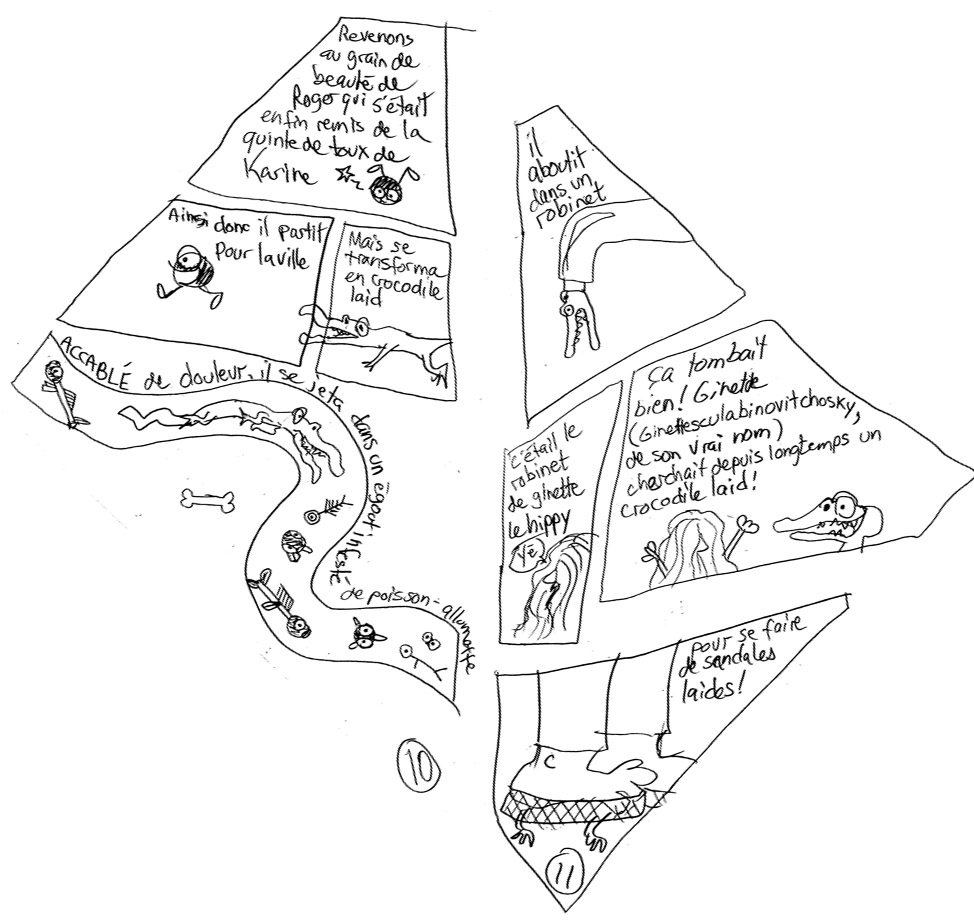 Revenons
au grain de
beauté de
Roger qui s'était
enfin remis de la
quinte de toux de
Karine
Ainsi donc il partit
pour la ville
Mais se
transforma
en crocodile
laid
ACCABLÉ de douleur, il se jeta dans un égout infesté de poisson-allumette
10
il
aboutit
dans un
robinet
c'était le
robinet
de ginette
le hippy
Yé
Ça tombait
bien! Ginette
(Ginettesculabinovitchosky,
de son vrai nom)
cherchait depuis longtemps un
crocodile laid!
pour se faire
de sandales
laides!
C
11